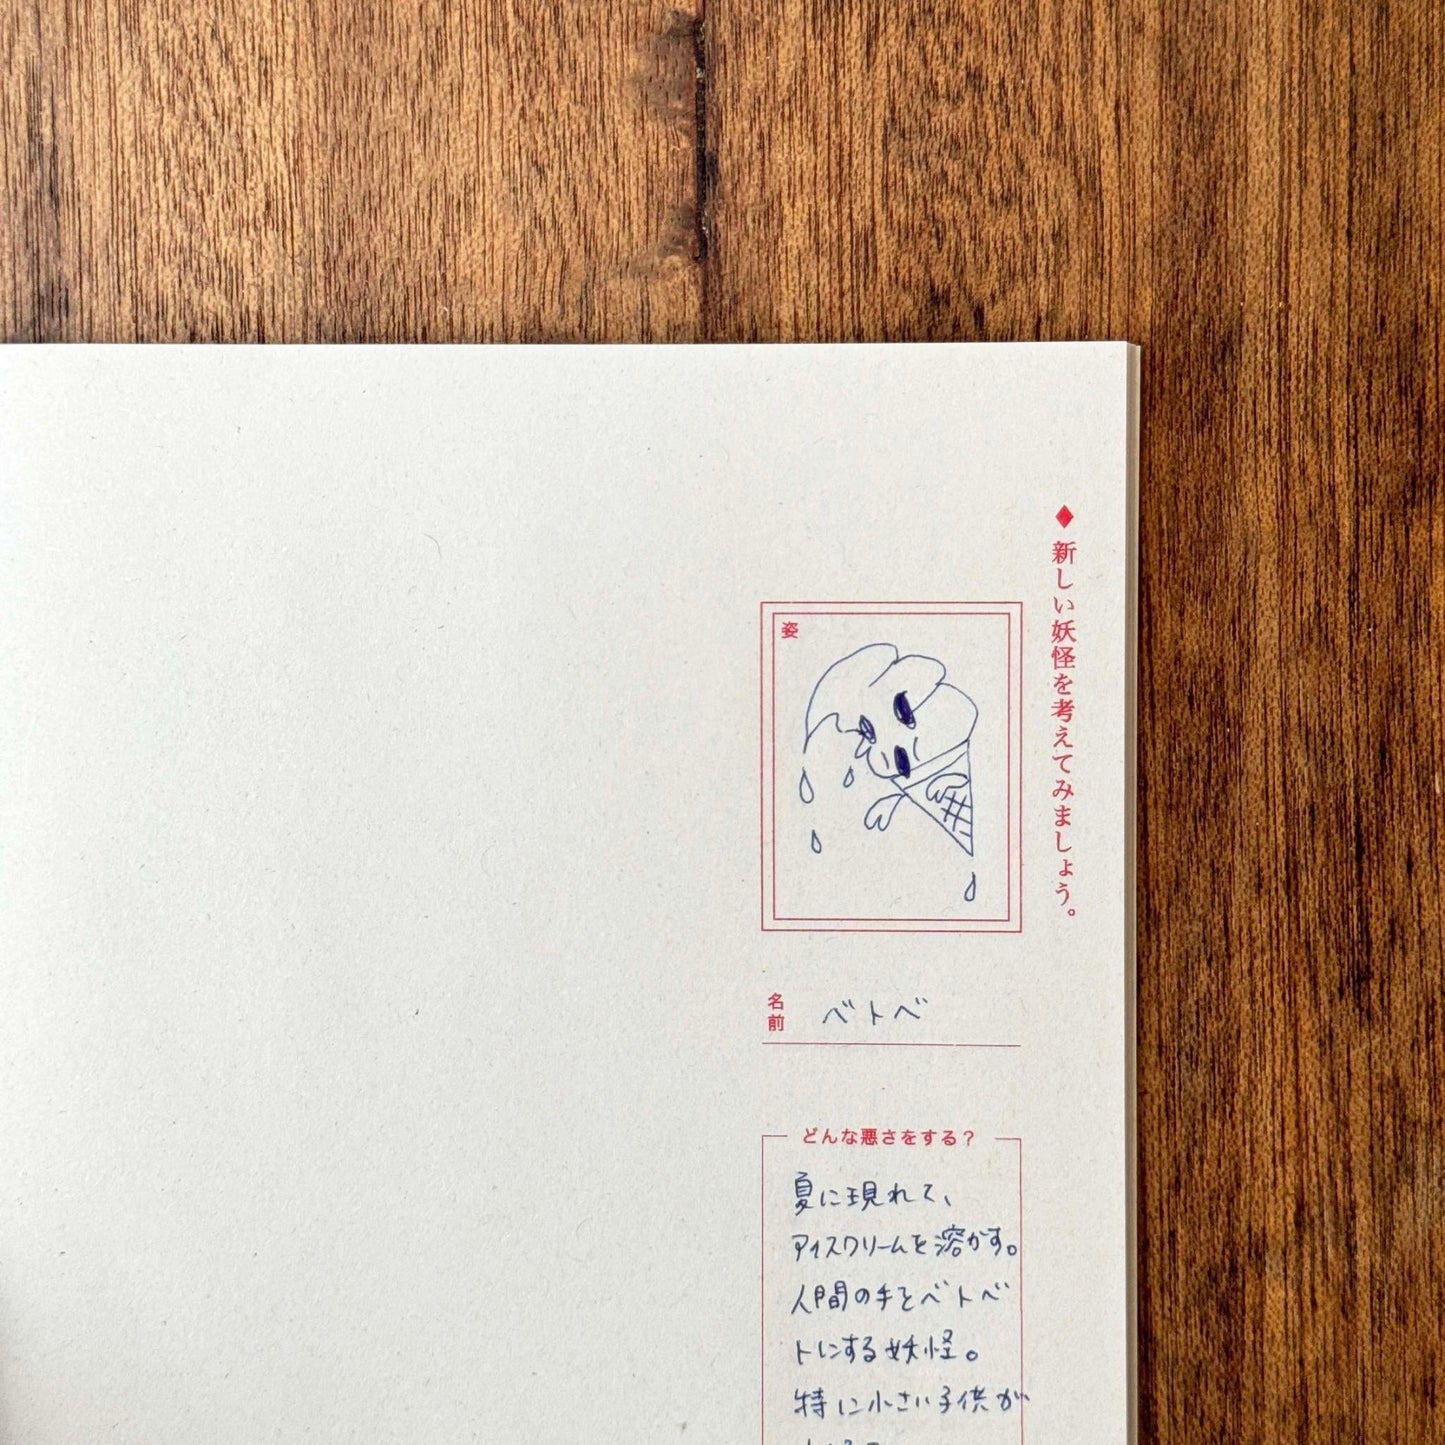 ◆新しい妖怪を考えてみましょう。
姿
名前 ベトベ
どんな悪さをする？
夏に現れて、
アイスクリームを溶かす。
人間の手をベトベ
トにする妖怪。
特に小さい子供が